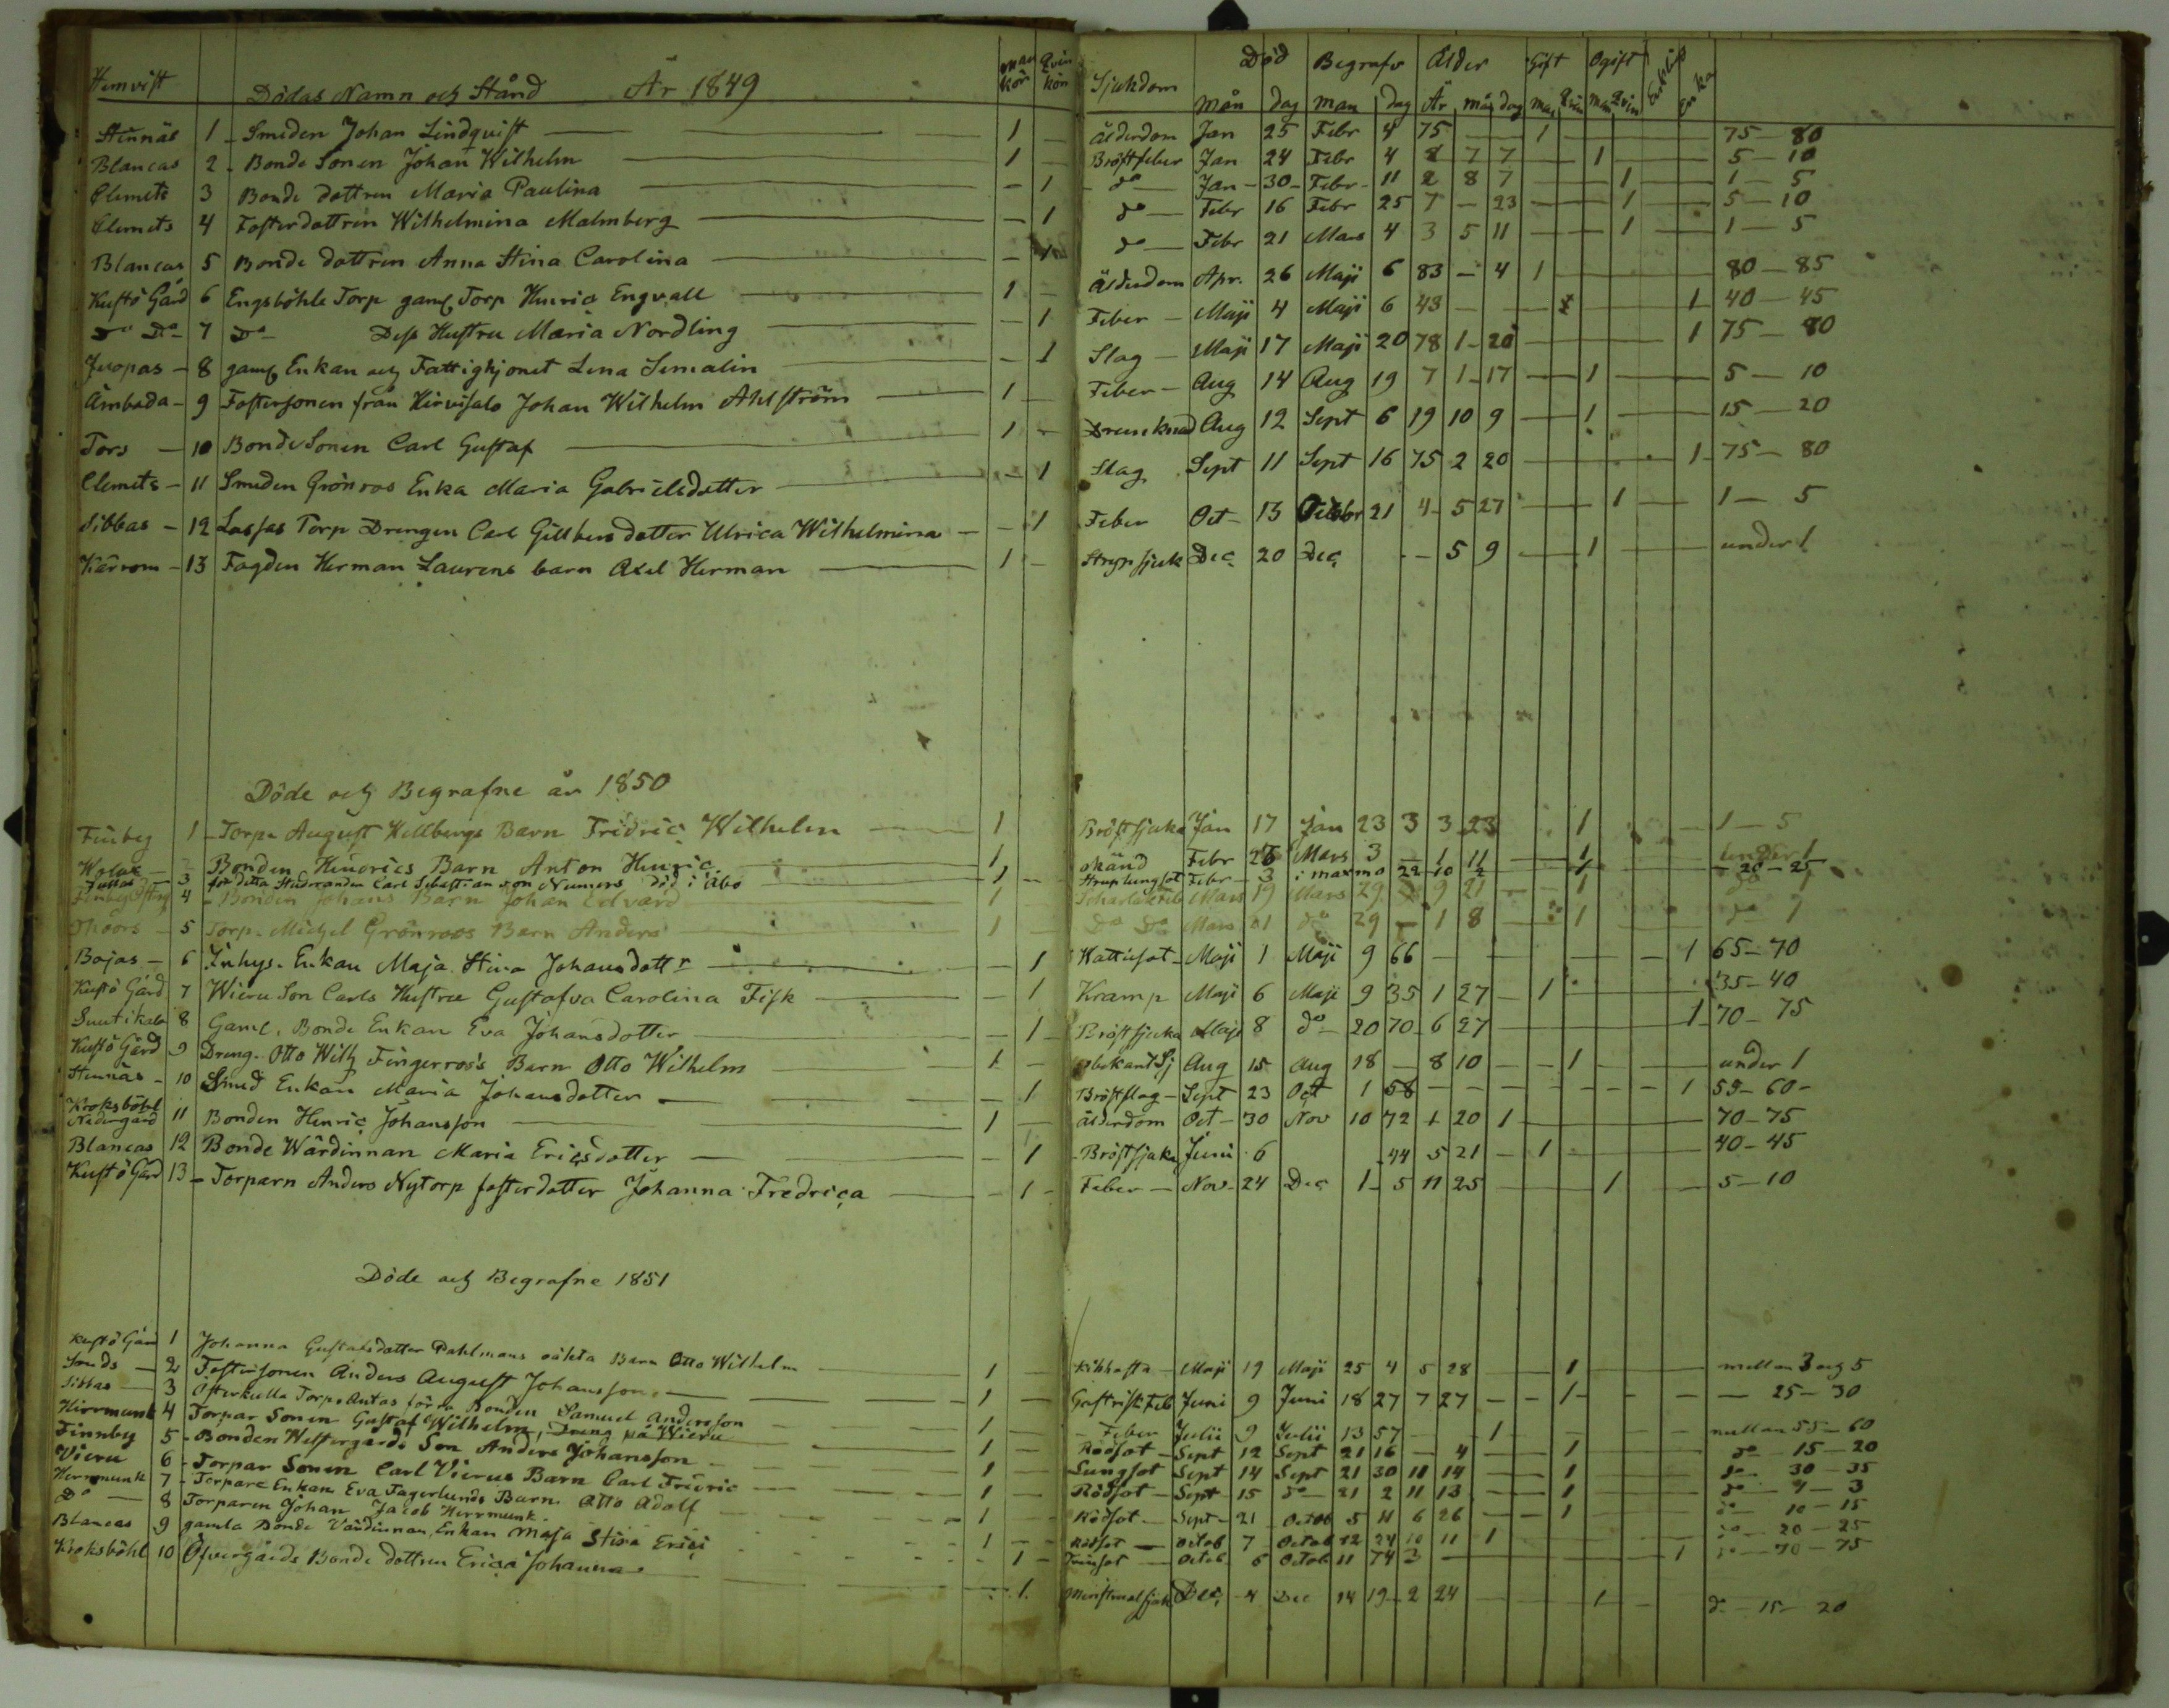 Hemvist Dödas Namn och Stånd År 1849 Man kön Qvin kön Sjukdom Död Begrafv Ålder Gift Ogift Enkling Enka
Mån dag man dag År mån dag man Qvin man Qvin
Stennäs 1 Smeden Johan Lindquist 1 — Ålderdom Jan 25 Febr 4 75 — — 1 75 — 80
Blancas 2 Bonde Sonen Johan Wilhelm 1 — Bröstfeber Jan 24 Febr 4 8 7 7 1 5 — 10
Clemets 3 Bonde dottren Maria Paulina — 1 do Jan 30 Febr 11 2 8 7 1 1 — 5
Clemets 4 Fosterdottren Wilhelmina Malmberg — 1 do Febr 16 Febr 25 7 — 23 1 5 — 10
Blancas 5 Bonde dottren Anna Stina Carolina — 1 do Febr 21 Mars 4 3 5 11 1 1 — 5
Kustö Gård 6 Engsböhle Torp gaml Torp Henric Engvall 1 — Ålderdom Apr. 26 Maji 6 83 — 4 1 80 — 85
Do Do 7 Do Dess Hustru Maria Nordling — 1 Feber Maji 4 Maji 6 43 — — 1 40 — 45
Juopas 8 gaml Enkan och Fattighjonet Lena Semalin — 1 Slag Maji 17 Maji 20 78 1 20 1 75 — 80
Åmbeda 9 Fostersonen från Hirvisalo Johan Wilhelm Ahlström 1 — Feber Aug 14 Aug 19 7 1 17 1 5 — 10
Tors 10 Bonde Sonen Carl Gustaf 1 — Drunknad Aug 12 Sept 6 19 10 9 1 15 — 20
Clemets 11 Smeden Grönroos Enka Maria Gabrielsdotter — 1 Slag Sept 11 Sept 16 75 2 20 1 75 — 80
Sibbas 12 Lassas Torp Drengen Carl Gillbers dotter Ulrica Wilhelmina — 1 Feber Oct 13 Octobr 21 4 5 27 1 1 — 5
Kärrom 13 Fogden Herman Laurens barn Axel Herman 1 — Strypsjuk Dec 20 Dec — 5 9 1 under 1
Döde och Begrafne år 1850
Finby 1 Torp. August Hellbergs Barn Fridric Wilhelm 1 Bröstsjuka Jan 17 Jan 23 3 3 23 1 1 — 5
Bonden Henrics Barn Anton Henric 1 okänd Febr 26 Mars 3 — 1 11 1 under 1
3 för detta Studeranden Carl Sebastian von Numers död i Åbo 1 Febr 3 i 22 10 1 20 — 25
4 Bonden Johans Barn Johan Edvard 1 Mars 19 Mars 29 9 21 1
5 Torp. Michel Grönroos Barn Anders 1 Do Do Mars do 29 — 1 8 1 do 1
Bojas 6 Inhys. Enkan Maja Stina Johansdottr — 1 Wattusot Maji 1 Maji 9 66 — — 1 65 — 70
Kustö Gård 7 Wieru Son Carls Hustru Gustafva Carolina Fisk — 1 Kramp Maji 6 Maji 9 35 1 27 1 35 — 40
8 Gaml. Bonde Enkan Eva Johansdotter — 1 Bröstsjuka Maji 8 do 20 70 6 27 1 70 — 75
Kustö Gård 9 Dreng. Otto Wilh Fingerroos's Barn Otto Wilhelm 1 — obekant Sj Aug 15 Aug 18 — 8 10 1 under 1
Stennäs 10 Smed Enkan Maria Johansdotter — 1 Bröstslag Sept 23 Oct 1 58 — — 1 55 — 60
Kroksböhl Nedergård 11 Bonden Henric Johansson 1 — ålderdom Oct 30 Nov 10 72 1 20 1 70 — 75
Blancas 12 Bonde Wärdinnan Maria Ericsdotter — 1 Bröstsjuka Juni 6 44 5 21 1 40 — 45
Kustö Gård 13 Torparn Anders Nytorp fosterdotter Johanna Fredrica — 1 Feber Nov 24 Dec 1 5 11 25 1 5 — 10
Döde och Begrafne 1851
Kustö Gård 1 Johanna Gustafsdotter Dahlmans oäkta Barn Otto Wilhelm 1 — Kikhosta Maji 19 Maji 25 4 5 28 1 mellan 3 och 5
2 Fostersonen Anders August Johansson 1 — Gastrisk Feb Juni 9 Juni 18 27 7 27 1 — 25 — 30
Sibbas 3 Österkulla Torp Antas förra Bonden Samuel Andersson 1 — Feber Julii 9 Julii 13 57 — 1 mellan 55 — 60
Hirrmunk 4 Torpar Sonen Gustaf Wilhelm, Dreng på Wieru 1 Rödsot Sept 12 Sept 21 16 — 4 1 do 15 — 20
Finnby 5 Bonden Westergårds Son Anders Johansson 1 Lungsot Sept 14 Sept 21 30 11 14 1 do 30 — 35
Vieru 6 Torpar Sonen Carl Vierus Barn Carl Fredric 1 Rödsot Sept 15 do 21 2 11 13 1 do
Herrmunk 7 Torpare Enkan Eva Fagerlunds Barn Otto Adolf 1 — Rödsot Sept 21 Octob 5 11 6 26 1 do 10 — 15
Do 8 Torparen Johan Jacob Herrmunk 1 — Rödsot Octob 7 Octob 12 24 10 11 1 do 20 — 25
Blancas 9 gamla Bonde Värdinnan, Enkan Maja Stina Erici — 1 Octob 6 Octob 11 74 1 do 70 — 75
Kroksböhl 10 Öfvergårds Bonde dottren Erica Johanna 1 Dec 4 Dec 14 19 2 24 1 do 15 — 20